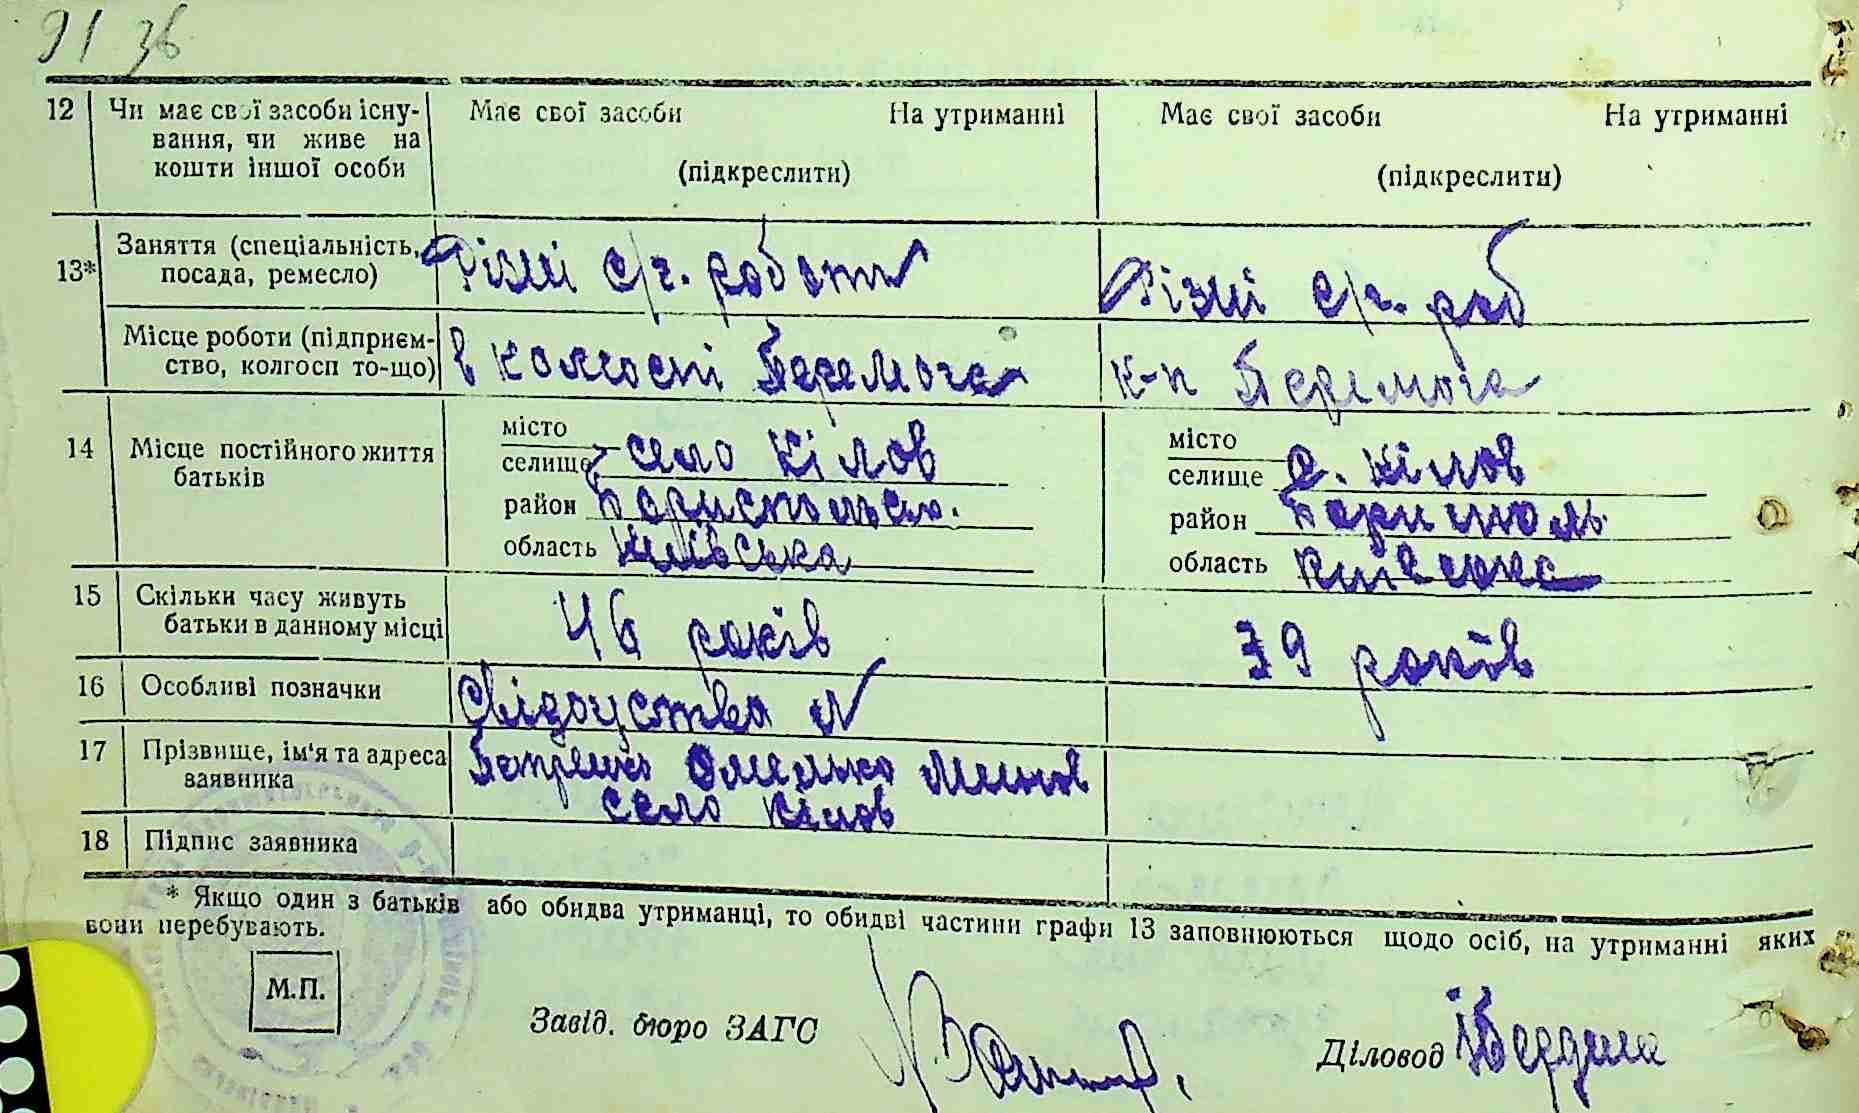 91 36
12 Чи має свої засоби існу- Має свої засоби На утриманні Має свої засоби На утриманні
вання, чи живе на
кошти іншої особи (підкреслити) (підкреслити)
13* Заняття (спеціальність, Різні с/г. роботи Різні с/г. роб
посада, ремесло)
Місце роботи (підприєм- в колгоспі Перемога к-п Перемога
ство, колгосп то-що)
14 Місце постійного життя місто село Кілов місто с. Кілов
батьків селище селище
район Бориспольськ. район Бориполь.
область Київська область Київська
15 Скільки часу живуть 46 років 39 років
батьки в данному місці
16 Особливі позначки Свідоцтва №
17 Прізвище, ім'я та адреса Петренко Омелько
заявника село Кілов
18 Підпис заявника
* Якщо один з батьків або обидва утриманці, то обидві частини графи 13 заповнюються щодо осіб, на утриманні яких
вони перебувають.
М.П.
Завід. бюро ЗАГС
Діловод